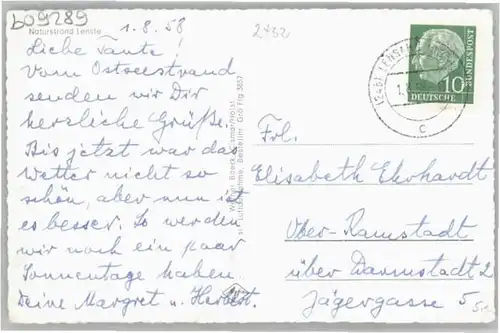 b09289
Naturstrand Lenste
1.8.58
2432
Liebe Tante!
Vom Ostseestrand
senden wir Dir
herzliche Grüße.
Bis jetzt war das
Wetter nicht so
schön, aber nun ist
es besser. So werden
wir noch ein paar
Sonnentage haben.
Deine Margret u. Herbert.
DEUTSCHE
BUNDESPOST
10
c
Frl.
Elisabeth Ekrhardt
Ober-Ramstadt
über Darmstadt 2
Jägergasse 5